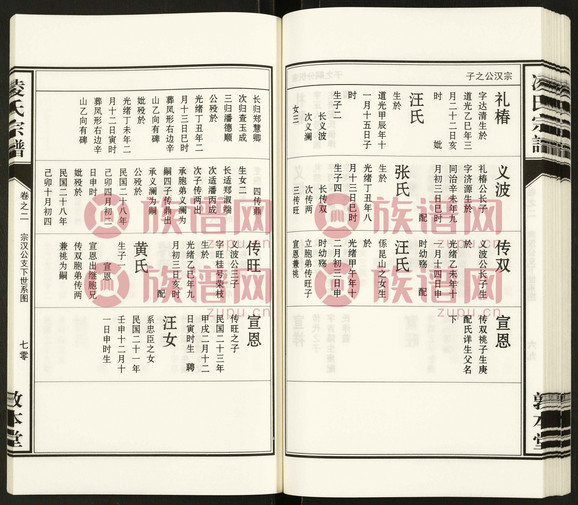 宗汉公之子
礼椿
字达清生於
道光乙巳年三
月二十二日亥
时 妣
汪氏
生於
道光甲辰年十
一月十五日子
时
生子二
长义波
次义澜
女三
长归郑慧卿
次归查玉成
三归潘德顺
公殁於
光绪丁丑年二
月十三日巳时
葬凤形右边辛
山乙向有碑
妣殁於
光绪丁未年二
月十二日寅时
葬凤形右边辛
山乙向有碑
义波
礼椿公长子
字济源生於
同治辛未年九
月初三日巳时
配
张氏
生於
光绪丁丑年八
月十三日巳时
生子四
长传双
次传两
三传旺
四传鼎
生女二
长适郑淑瑞
次适潘丙成
次子传两出
承胞弟义澜为
嗣四子传鼎出
承义澜为嗣
公殁於
民国二十八年
己卯四月初二
日申时
妣殁於
民国二十八年
己卯十月初四
传双
义波公长子生
光绪乙未年十
月十四日申
时幼殇 配
汪氏
係昆山之女生
於
光绪甲午年十
二月初三日申
时幼殇
立胞弟传旺子
宣恩兼桃
传旺
义波公三子
字旺桂号荣枝
生於
光绪乙巳年九
月初三日亥时
配
黄氏
生子一
宣恩
宣恩出继胞兄
传双胞弟传两
兼祧为嗣
宣恩
传双桃子生庚
配氏详生父名
下
宣恩
传旺之子
民国二十三年
甲戌二月十二
日寅时生 聘
汪女
系忠臣之女生
民国二十一年
壬申十二月十
一日申时生
凌氏宗譜
卷之二 宗汉公支下世系图
七零
敦本堂
族谱网
zupu.cn